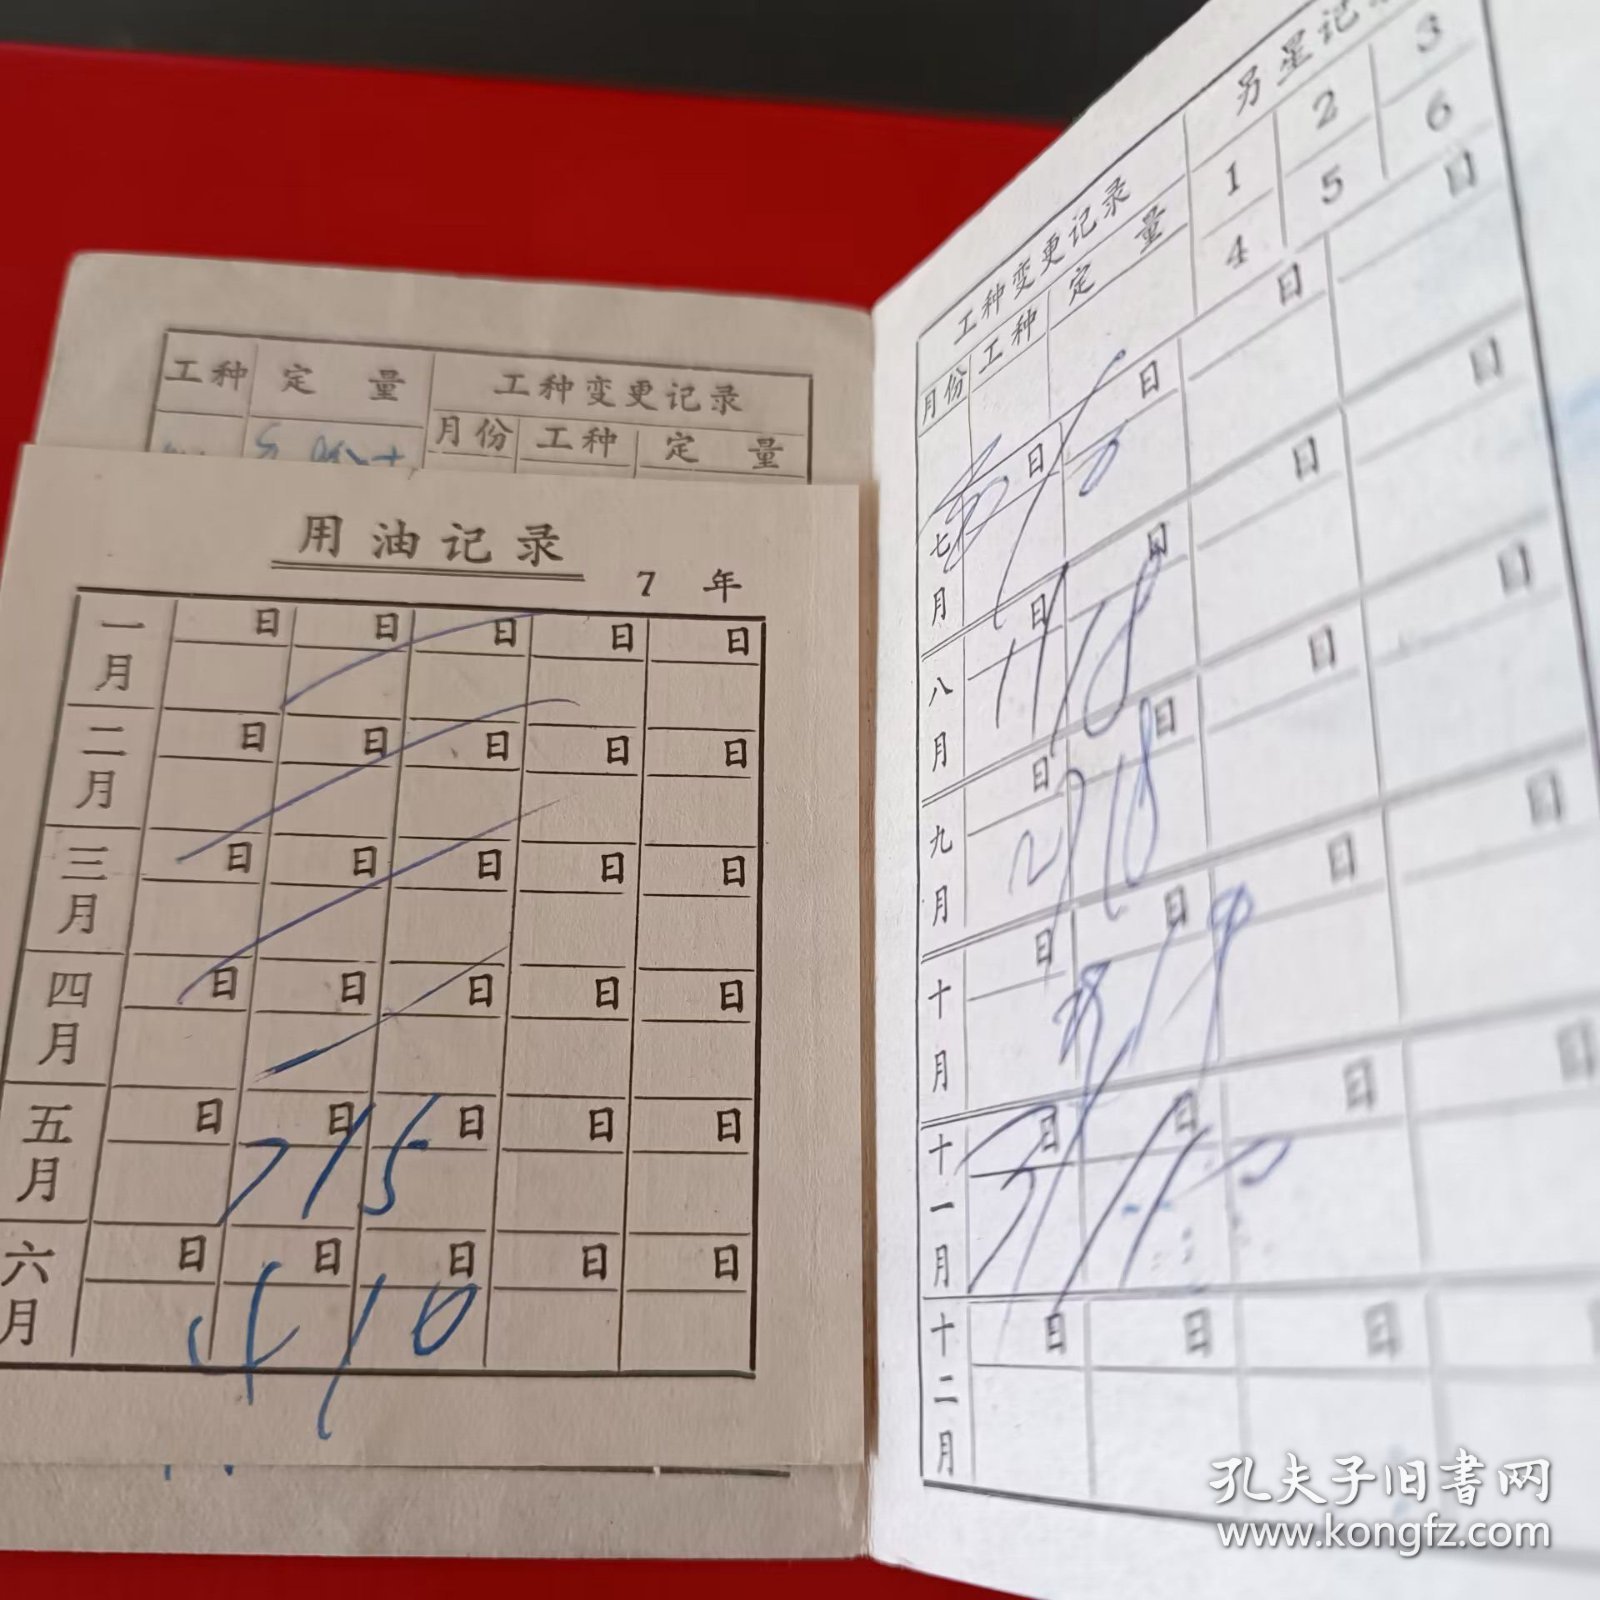 工种 定量 工种变更记录
月份 工种 定量
用油记录
7 年
一月 日 日 日 日 日
二月 日 日 日 日 日
三月 日 日 日 日 日
四月 日 日 日 日 日
五月 日 日 日 日 日
7/5
六月 日 日 日 日 日
工种变更记录 另星记
月份 工种 定量 1 2 3
4 5 6
七月 日 日 日 日
八月 日 日 日 日
11/8
九月 日 日 日 日
2/18
十月 日 日 日 日
十一月 日 日 日 日
十二月 日 日 日
孔夫子旧书网
www.kongfz.com